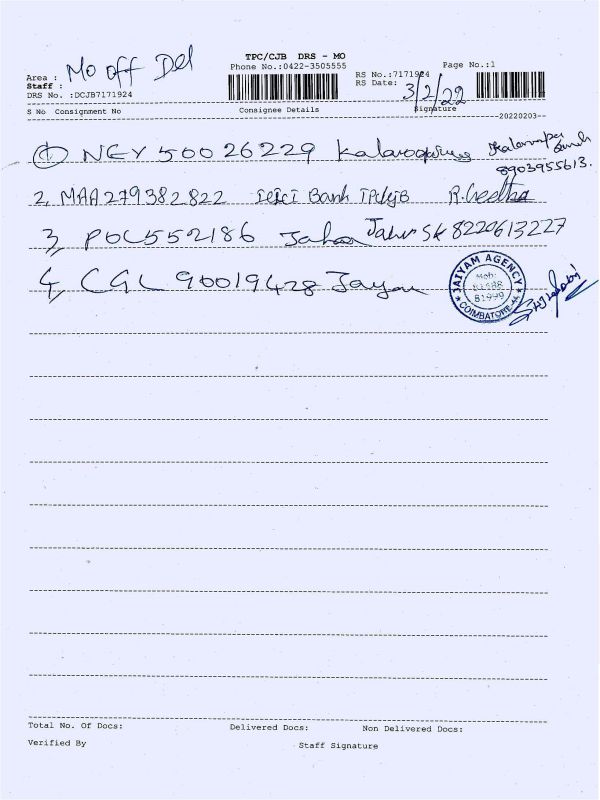 TPC/CJB DRS - MO
Phone No.:0422-3505555
Page No.:1
Area : Mo off Del
Staff :
DRS No. :DCJB7171924
RS No.:7171924
RS Date: 3/2/22
S No Consignment No Consignee Details Signature
20220203
1, NEY 50026229 8903955613.
2, MAA279382822 icici Bank R. Geetha
3, POL552186 8220613227
4, CGL 90019428 Jayam
JAIYAM AGENCY
Mob:
81999
COIMBATORE
Total No. Of Docs: Delivered Docs: Non Delivered Docs:
Verified By Staff Signature